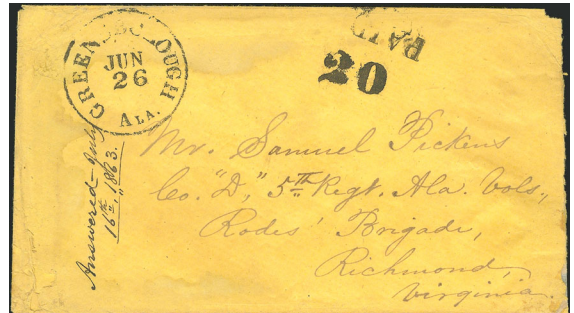 GREENSBOROUGH
JUN
26
ALA.
PAID
20
Answered - July
16th, 1863.
Mr. Samuel Pickens
Co. "D," 5th Regt. Ala. Vols.,
Rodes' Brigade,
Richmond,
Virginia.